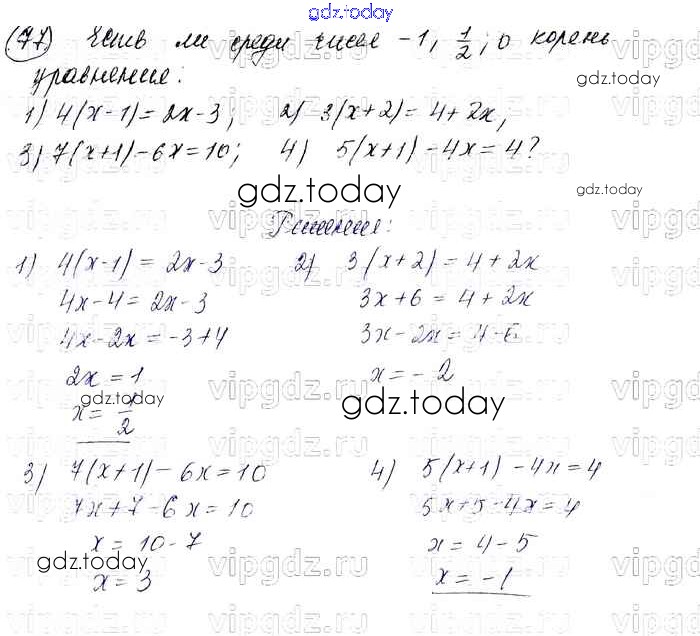 gdz.today
(77) Есть ли среди чисел -1, 1/2, 0 корень
уравнения:
1) 4(x-1)=2x-3; 2) 3(x+2)=4+2x,
3) 7(x+1)-6x=10; 4) 5(x+1)-4x=4?
gdz.today
gdz.today
gdz.today
Решение:
1) 4(x-1)=2x-3
4x-4=2x-3
4x-2x=-3+4
2x=1
x=1/2
gdz.today
2) 3(x+2)=4+2x
3x+6=4+2x
3x-2x=4-6
x=-2
gdz.today
3) 7(x+1)-6x=10
7x+7-6x=10
x=10-7
x=3
gdz.today
4) 5(x+1)-4x=4
5x+5-4x=4
x=4-5
x=-1
vipgdz.ru